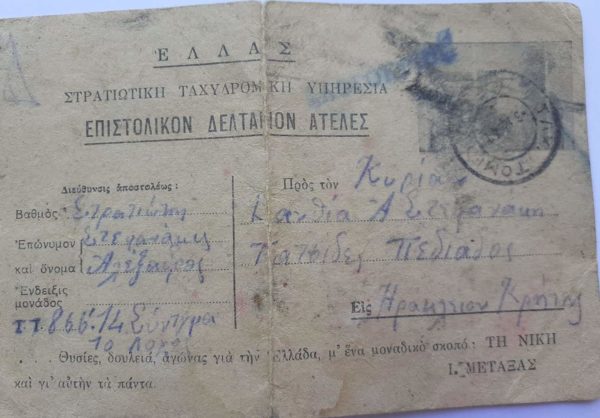 ΕΛΛΑΣ
ΣΤΡΑΤΙΩΤΙΚΗ ΤΑΧΥΔΡΟΜΙΚΗ ΥΠΗΡΕΣΙΑ
ΕΠΙΣΤΟΛΙΚΟΝ ΔΕΛΤΑΡΙΟΝ ΑΤΕΛΕΣ
Διεύθυνσις ἀποστολέως:
Βαθμὸς Στρατιώτη
Ἐπώνυμον Στεφανάκις
καὶ ὄνομα Αλέξαδρος
Ἔνδειξις
μονάδος
Τ.Τ. 866. 14 Σύνταγμα
10 Λοχο
Πρὸς τὸν Κυρίαν
Α Στεφανακη
Πεδιαδος
Εἰς Ηρακλειον Κρήτης
Θυσίες, δουλειά, ἀγώνας γιὰ τὴν Ἑλλάδα, μ' ἕνα μοναδικὸ σκοπό: ΤΗ ΝΙΚΗ
καὶ γι' αὐτὴν τὰ πάντα.
Ι. ΜΕΤΑΞΑΣ